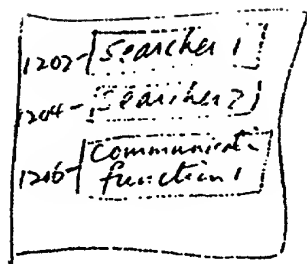 1202 Searcher 1
1204 Searcher 2
1206 Communicati
function 1